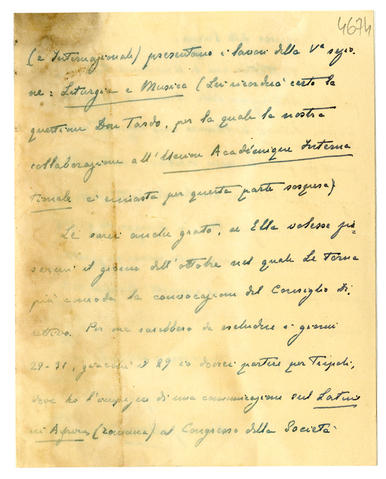 4674
(e Internazionale) presentano i lavori della Vª sezio-
ne: Liturgia e Musica (Lei ricorderà certo la
questione Don Tardo, per la quale la nostra
collaborazione all'Union Académique Interna
tionale è rimasta per questa parte sospesa)
Le sarei anche grato, se Ella volesse pre-
cisarmi il giorno dell'ottobre nel quale Le torna
più comoda la convocazione del Consiglio Di-
rettivo. Per me sarebbero da escludere i giorni
29-31, giacché il 29 io dovrei partire per Tripoli,
dove ho l'impegno di una comunicazione sul Latino
in Africa (romana) al Congresso della Società